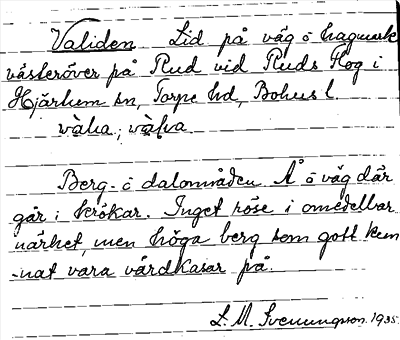 Validen Lid på väg o hagmark
västeröver på Rud vid Ruds Skog i
Hjärtum sn, Torpe hd, Bohus l.
Berg- o dalområden. Å o väg där
går i krökar. Inget röse i omedelbar
närhet, men höga berg som gott kun
-nat vara vårdkasar på.
L. M. Svenungsson. 1935